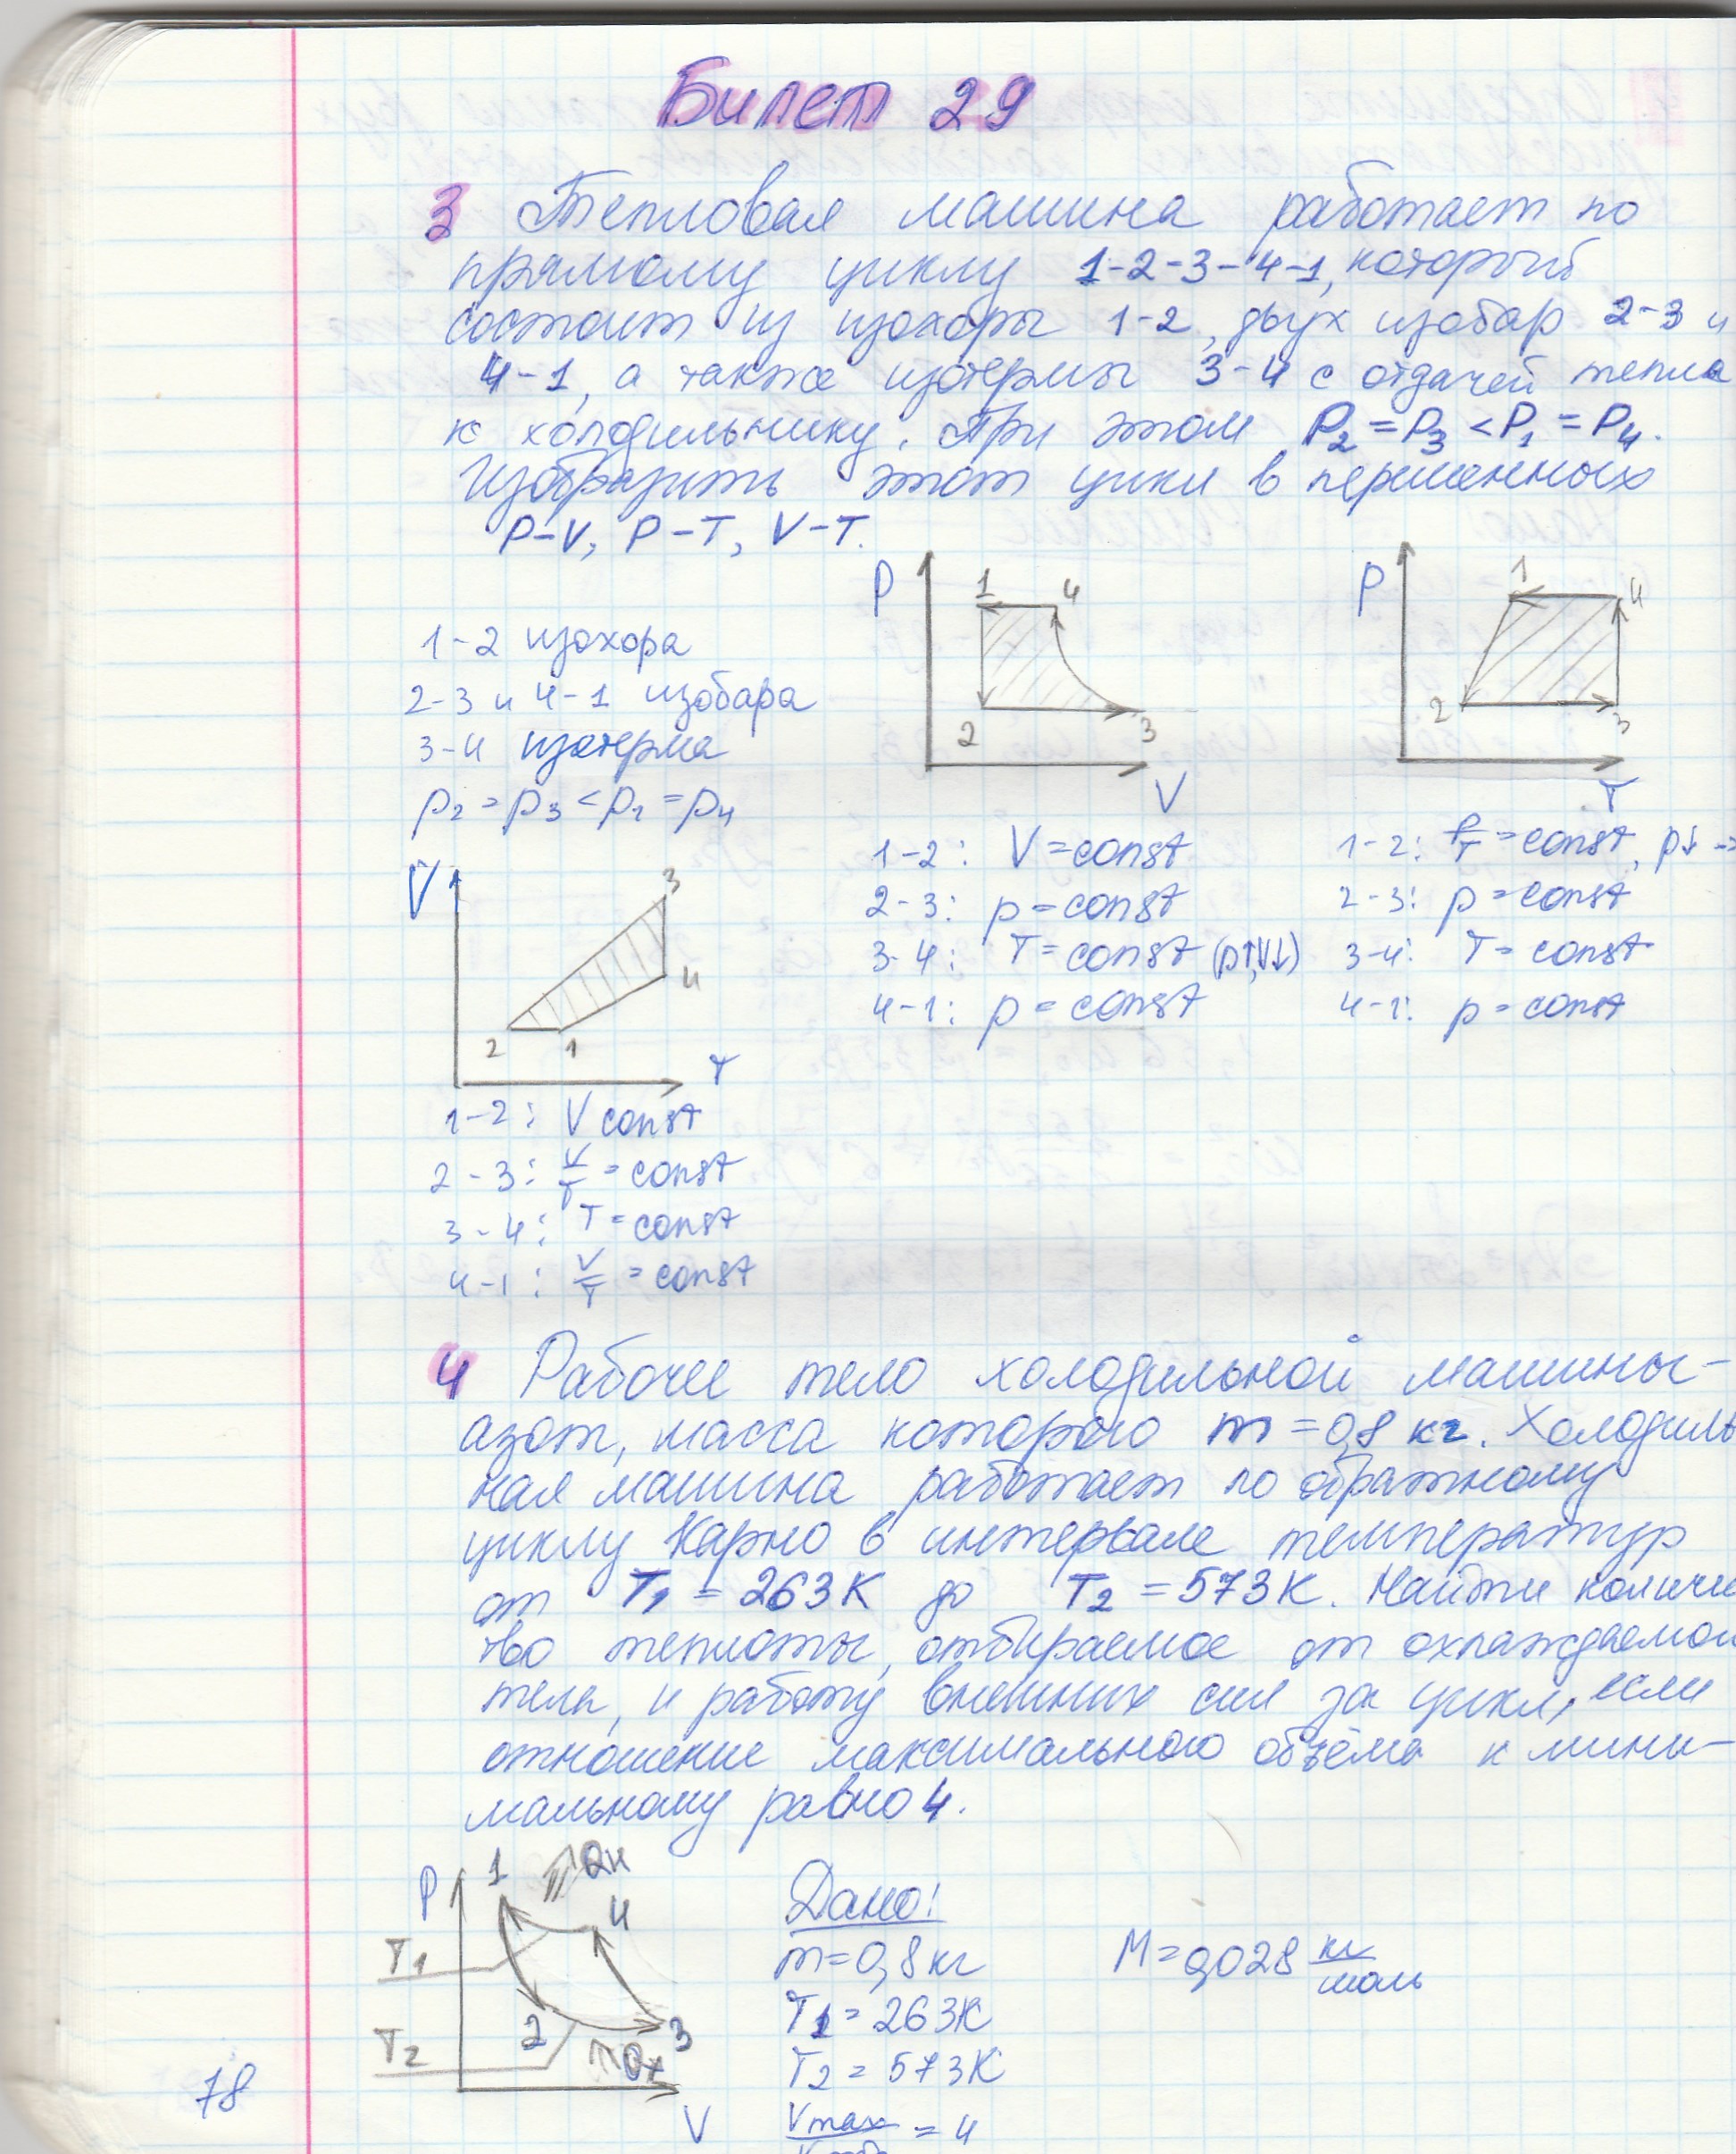 Билет 29
3 Тепловая машина работает по
прямому циклу 1-2-3-4-1, который
состоит из изохоры 1-2, двух изобар 2-3 и
4-1, а также изотермы 3-4 с отдачей тепла
к холодильнику. При этом P₂ = P₃ < P₁ = P₄.
Изобразить этот цикл в переменных
P-V, P-T, V-T.
1-2 изохора
2-3 и 4-1 изобара
3-4 изотерма
p₂ = p₃ < p₁ = p₄
P 1 4 2 3 V
1-2: V = const
2-3: p = const
3-4: T = const (p↑, V↓)
4-1: p = const
P 1 4 2 3 T
1-2: p/T = const, p↓ →
2-3: p = const
3-4: T = const
4-1: p = const
V 3 4 2 1 T
1-2: V const
2-3: V/T = const
3-4: T = const
4-1: V/T = const
4 Рабочее тело холодильной машины-
азот, масса которого m = 0,8 кг. Холодиль
ная машина работает по обратному
циклу Карно в интервале температур
от T₁ = 263 K до T₂ = 573 K. Найти количе
тво теплоты, отбираемое от охлаждаемой
тела, и работу внешних сил за цикл, если
отношение максимального объёма к мини-
мальному равно 4.
P 1 Qн 4 T₁ T₂ 2 3 Qх V
Дано:
m = 0,8 кг
T₁ = 263 K
T₂ = 573 K
Vmax = 4
M = 0,028 кг/моль
78